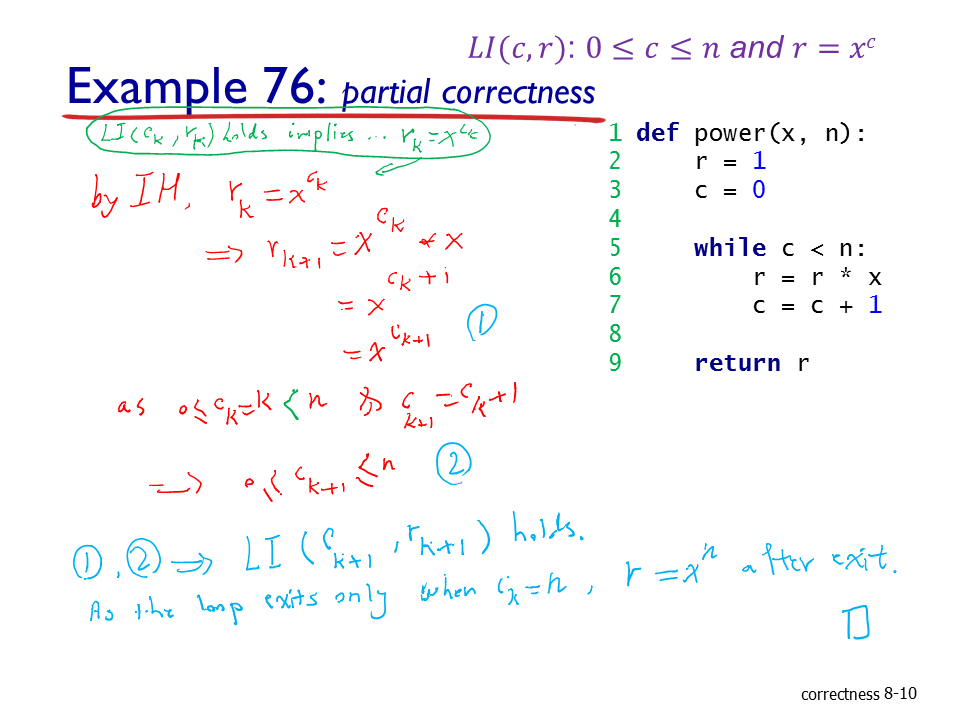 LI(c, r): 0 ≤ c ≤ n and r = x^c
Example 76: partial correctness
LI(c_k, r_k) holds implies ... r_k = x^{c_k}
by IH, r_k = x^{c_k}
⟹ r_{k+1} = x^{c_k} * x
= x^{c_k + 1}
= x^{c_{k+1}} ①
as 0 ≤ c_k = k < n & c_{k+1} = c_k + 1
⟹ 0 ≤ c_{k+1} ≤ n ②
①, ② ⟹ LI(c_{k+1}, r_{k+1}) holds.
As the loop exits only when c_k = n, r = x^n after exit.
□
1 def power(x, n):
2 r = 1
3 c = 0
4
5 while c < n:
6 r = r * x
7 c = c + 1
8
9 return r
correctness 8-10